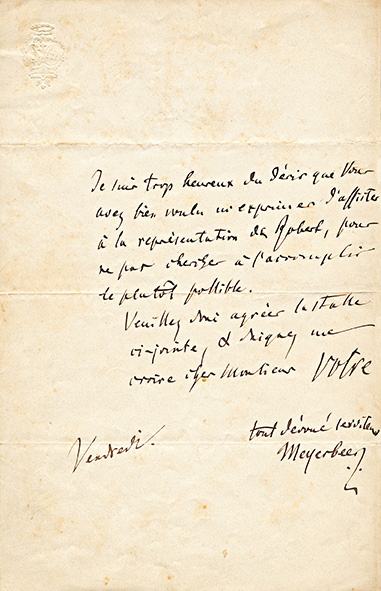 Je suis trop heureux du désir que Vous
avez bien voulu m'exprimer d'assister
à la représentation de Robert, pour
ne pas chercher à l'accomplir
le plutôt possible.
Veuillez donc agréer la Stalle
ci-jointe, & daignez me
croire cher Monsieur Votre
tout dévoué serviteur
Meyerbeer
Vendredi.